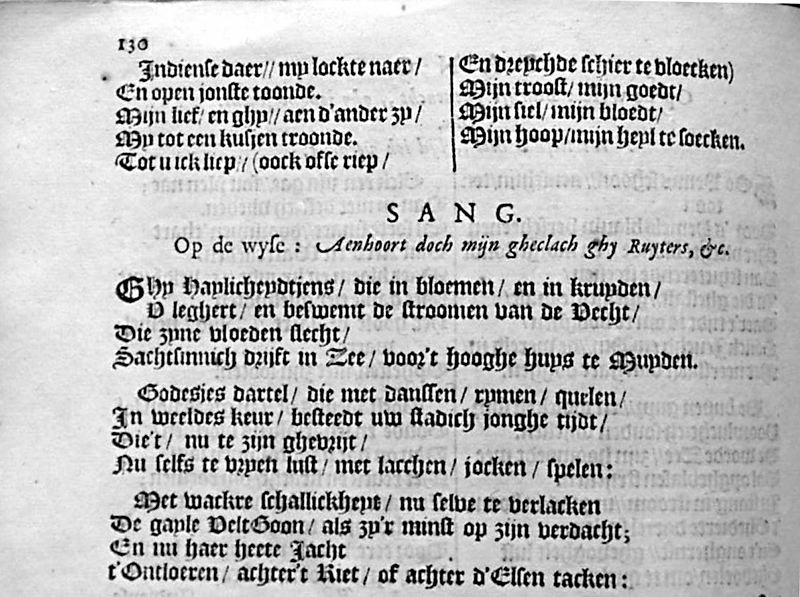 130
Indiense daer// my lockte naer/
En open jonste toonde.
Mijn lief/ en ghy// aen d'ander zy/
My tot een kusjen troonde.
Tot u ick liep// (oock ofse riep/
En dreychde schier te vloecken)
Mijn troost/ mijn goedt/
Mijn siel/ mijn bloedt/
Mijn hoop/mijn heyl te soecken.
SANG.
Op de wyse : Aenhoort doch mijn gheclach ghy Ruyters, &c.
Ghy Haylicheydtjens/ die in bloemen/ en in kruyden/
V leghert/ en beswemt de stroomen van de Vecht/
Die zyne vloeden slecht/
Sachtsinnich drijft in Zee/ voor't hooghe huys te Muyden.
Godesjes dartel/ die met danssen/ rymen/ quelen/
In weeldes keur/ besteedt uw stadich jonghe tijdt/
Die't/ nu te zijn ghevrijt/
Nu selfs te vryen lust/ met lacchen/ jocken/ spelen:
Met wackre schallickheyt/ nu selve te verlacken
De gayle VeltGoon/ als zy'r minst op zijn verdacht;
En nu haer heete Jacht
t'Ontloeren/ achter't Riet/ of achter d'Elsen tacken: